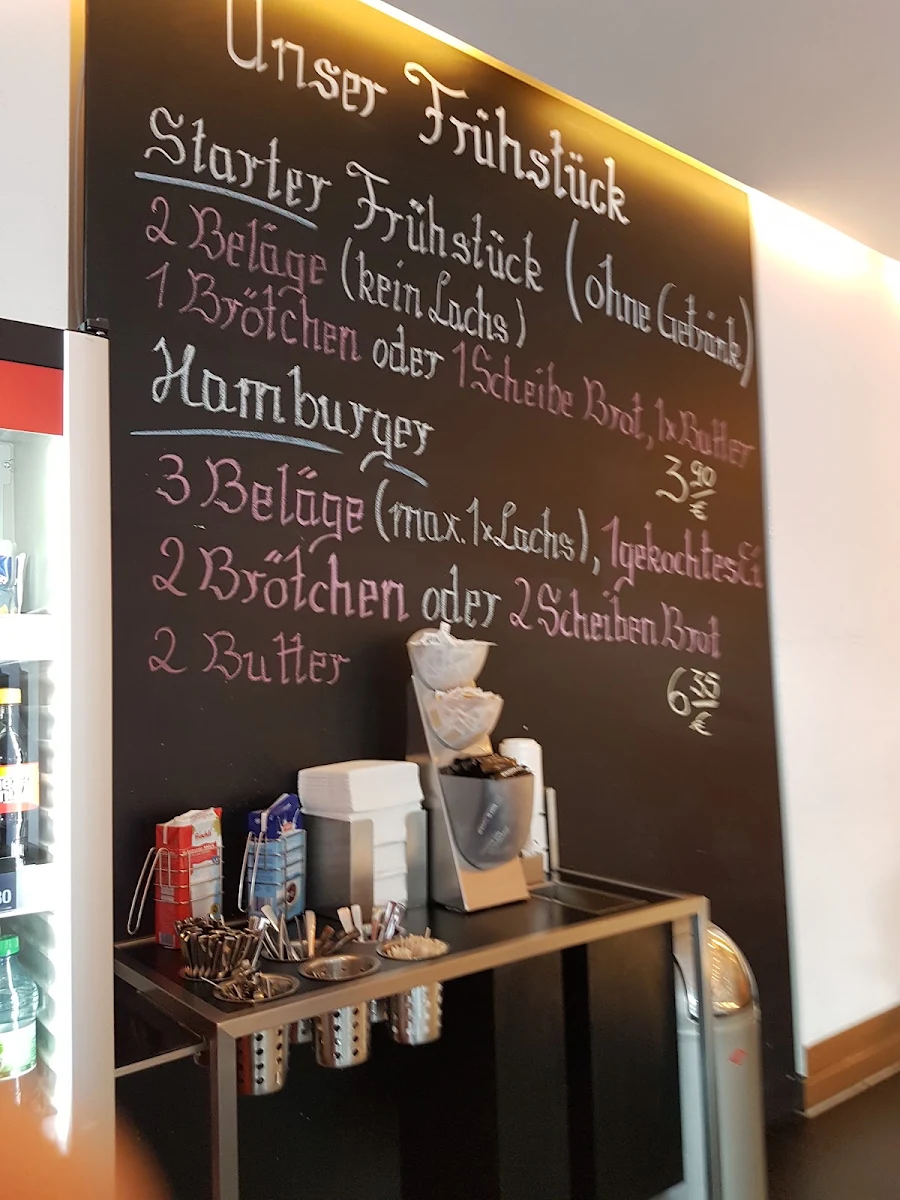 Unser Frühstück
Starter Frühstück (ohne Getränk)
2 Beläge (kein Lachs)
1 Brötchen oder 1 Scheibe Brot, 1x Butter
3,90 €
Hamburger
3 Beläge (max. 1x Lachs), 1 gekochtes Ei
2 Brötchen oder 2 Scheiben Brot
2 Butter
6 35 €